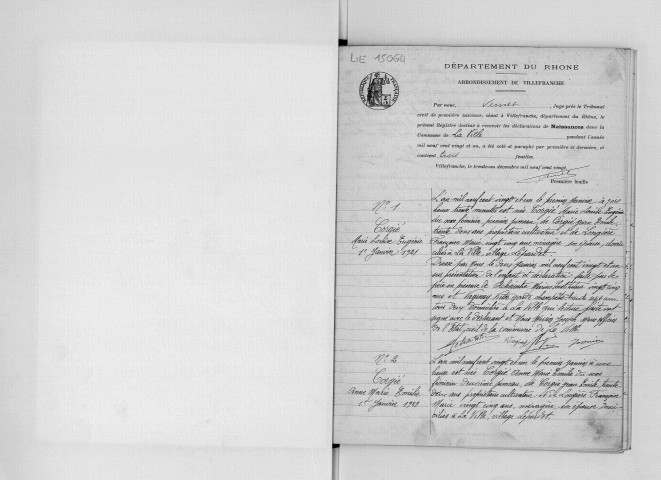 L.E 15064
DÉPARTEMENT DU RHONE
ARRONDISSEMENT DE VILLEFRANCHE
Par nous, Juge près le Tribunal
civil de première instance, séant à Villefranche, département du Rhône, le
présent Registre destiné à recevoir les déclarations de Naissances dans la
Commune de La Ville pendant l'année
mil neuf cent vingt et un, a été coté et paraphé par première et dernière, et
contient trois feuilles.
Villefranche, le trente un décembre mil neuf cent vingt.
Première feuille
N° 1
Corgié
Marie Louise Eugénie
1er Janvier 1921
L'an mil neuf cent vingt et un le premier Janvier à
heure trente minutes est née Corgié Marie Louise Eugénie
du sexe féminin, premier jumeau de Corgié Jean Emile
trente deux ans propriétaire cultivateur et de
Françoise Marie vingt cinq ans ménagère son épouse
à La Ville, village
Dressé par Nous le deux Janvier mil neuf cent vingt et un
sur présentation de l'enfant et déclaration faite par le
père en présence de vingt cinq
ans et trente sept ans
tous deux domiciliés à La Ville qui lecture faite ont
signé avec le déclarant et Nous
de l'Etat civil de la commune de La Ville
N° 2
Corgié
Anne Marie Emilie
1er Janvier 1921
L'an mil neuf cent vingt et un le premier janvier à une
heure est née Corgié Anne Marie Emilie du sexe
féminin deuxième jumeau de Corgié Jean Emile trente
deux ans propriétaire cultivateur et de Françoise
Marie vingt cinq ans, ménagère, son épouse
à La Ville, village